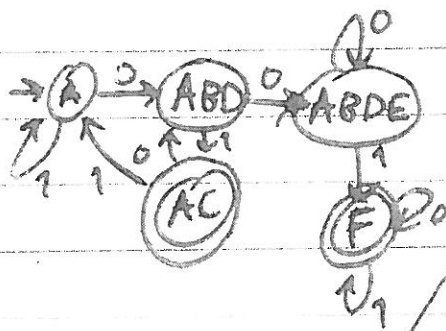 0
A 0 ABD 0 ABDE
1 1 0 1 1
AC F 0
1